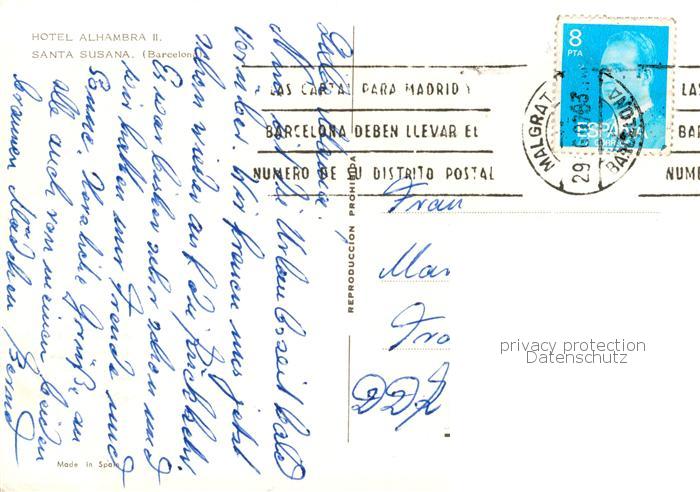 HOTEL ALHAMBRA II.
SANTA SUSANA. (Barcelona
Liebe
Nun ist die Urlaubszeit bald
vorüber. Wir freuen uns jetzt
schon wieder auf die Rückkehr.
Es war bisher sehr schön und
wir hatten nur Freude und
Sonne. Herzliche Grüße an
alle auch von meinen beiden
braunen Mädchen Bernd
Made in Spain
REPRODUCCION PROHIBIDA
LAS CARTAS PARA MADRID Y
BARCELONA DEBEN LLEVAR EL
NUMERO DE SU DISTRITO POSTAL
MALGRAT
BARCELONA
29
8
PTA
ESPAÑA
CORREOS
LAS
BAR
NUME
Frau
Mar
Fra
DDR
privacy protection
Datenschutz